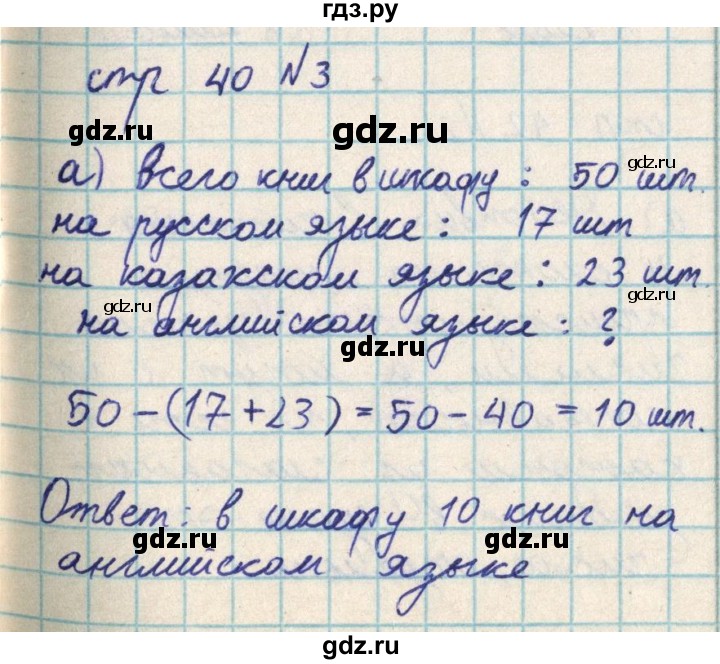 гдз.ру
стр 40 №3
gdz.ru gdz.ru
gdz.ru
а) всего книг в шкафу : 50 шт.
на русском языке : 17 шт
на казахском языке : 23 шт.
gdz.ru gdz.ru
на английском языке : ?
gdz.ru
50 - (17 + 23) = 50 - 40 = 10 шт.
Ответ: в шкафу 10 книг на
gdz.ru gdz.ru
английском языке
gdz.ru